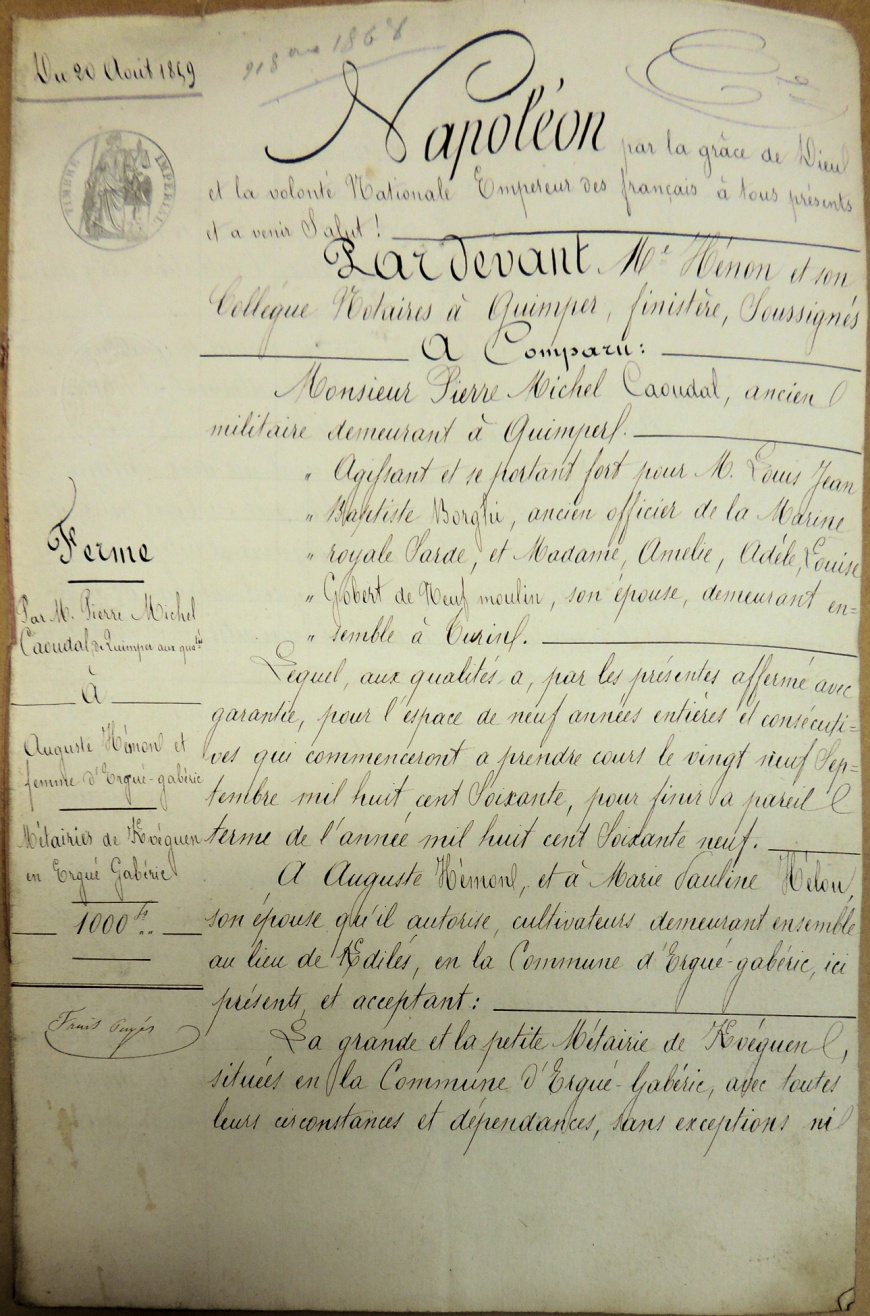 Du 20 Août 1859
918 1868
TIMBRE IMPÉRIAL
Napoléon par la grâce de Dieu
et la volonté Nationale Empereur des français à tous présents
et a venir Salut !
Pardevant Me Hénon et son
Collègue Notaires à Quimper, finistère, Soussignés
A Comparu :
Monsieur Pierre Michel Caoudal, ancien
militaire demeurant à Quimper.
" Agissant et se portant fort pour M. Louis Jean
" Baptiste Borghi, ancien officier de la Marine
" royale Sarde, et Madame, Amelie, Adèle, Louise
" Gobert de Neuf moulin, son épouse, demeurant en=
" semble à Turin.
Lequel, aux qualités a, par les présentes affermé avec
garantie, pour l'espace de neuf années entières et consécuti=
ves qui commenceront a prendre cours le vingt neuf Sep=
tembre mil huit cent Soixante, pour finir a pareil
terme de l'année mil huit cent Soixante neuf.
A Auguste Hémon, et à Marie Pauline Hélou,
son épouse qu'il autorise, cultivateurs demeurant ensemble
au lieu de Kdilés, en la Commune d'Ergué-gabéric, ici
présents, et acceptant :
La grande et la petite Métairie de Kvéguen,
situées en la Commune d'Ergué-Gabéric, avec toutes
leurs circonstances et dépendances, sans exceptions ni
Ferme
Par M. Pierre Michel
Caoudal de Quimper aux qu.tés
À
Auguste Hémon et
femme d'Ergué-gabéric
Métairies de Kvéguen
en Ergué Gabéric
1000 fr
Frais payés